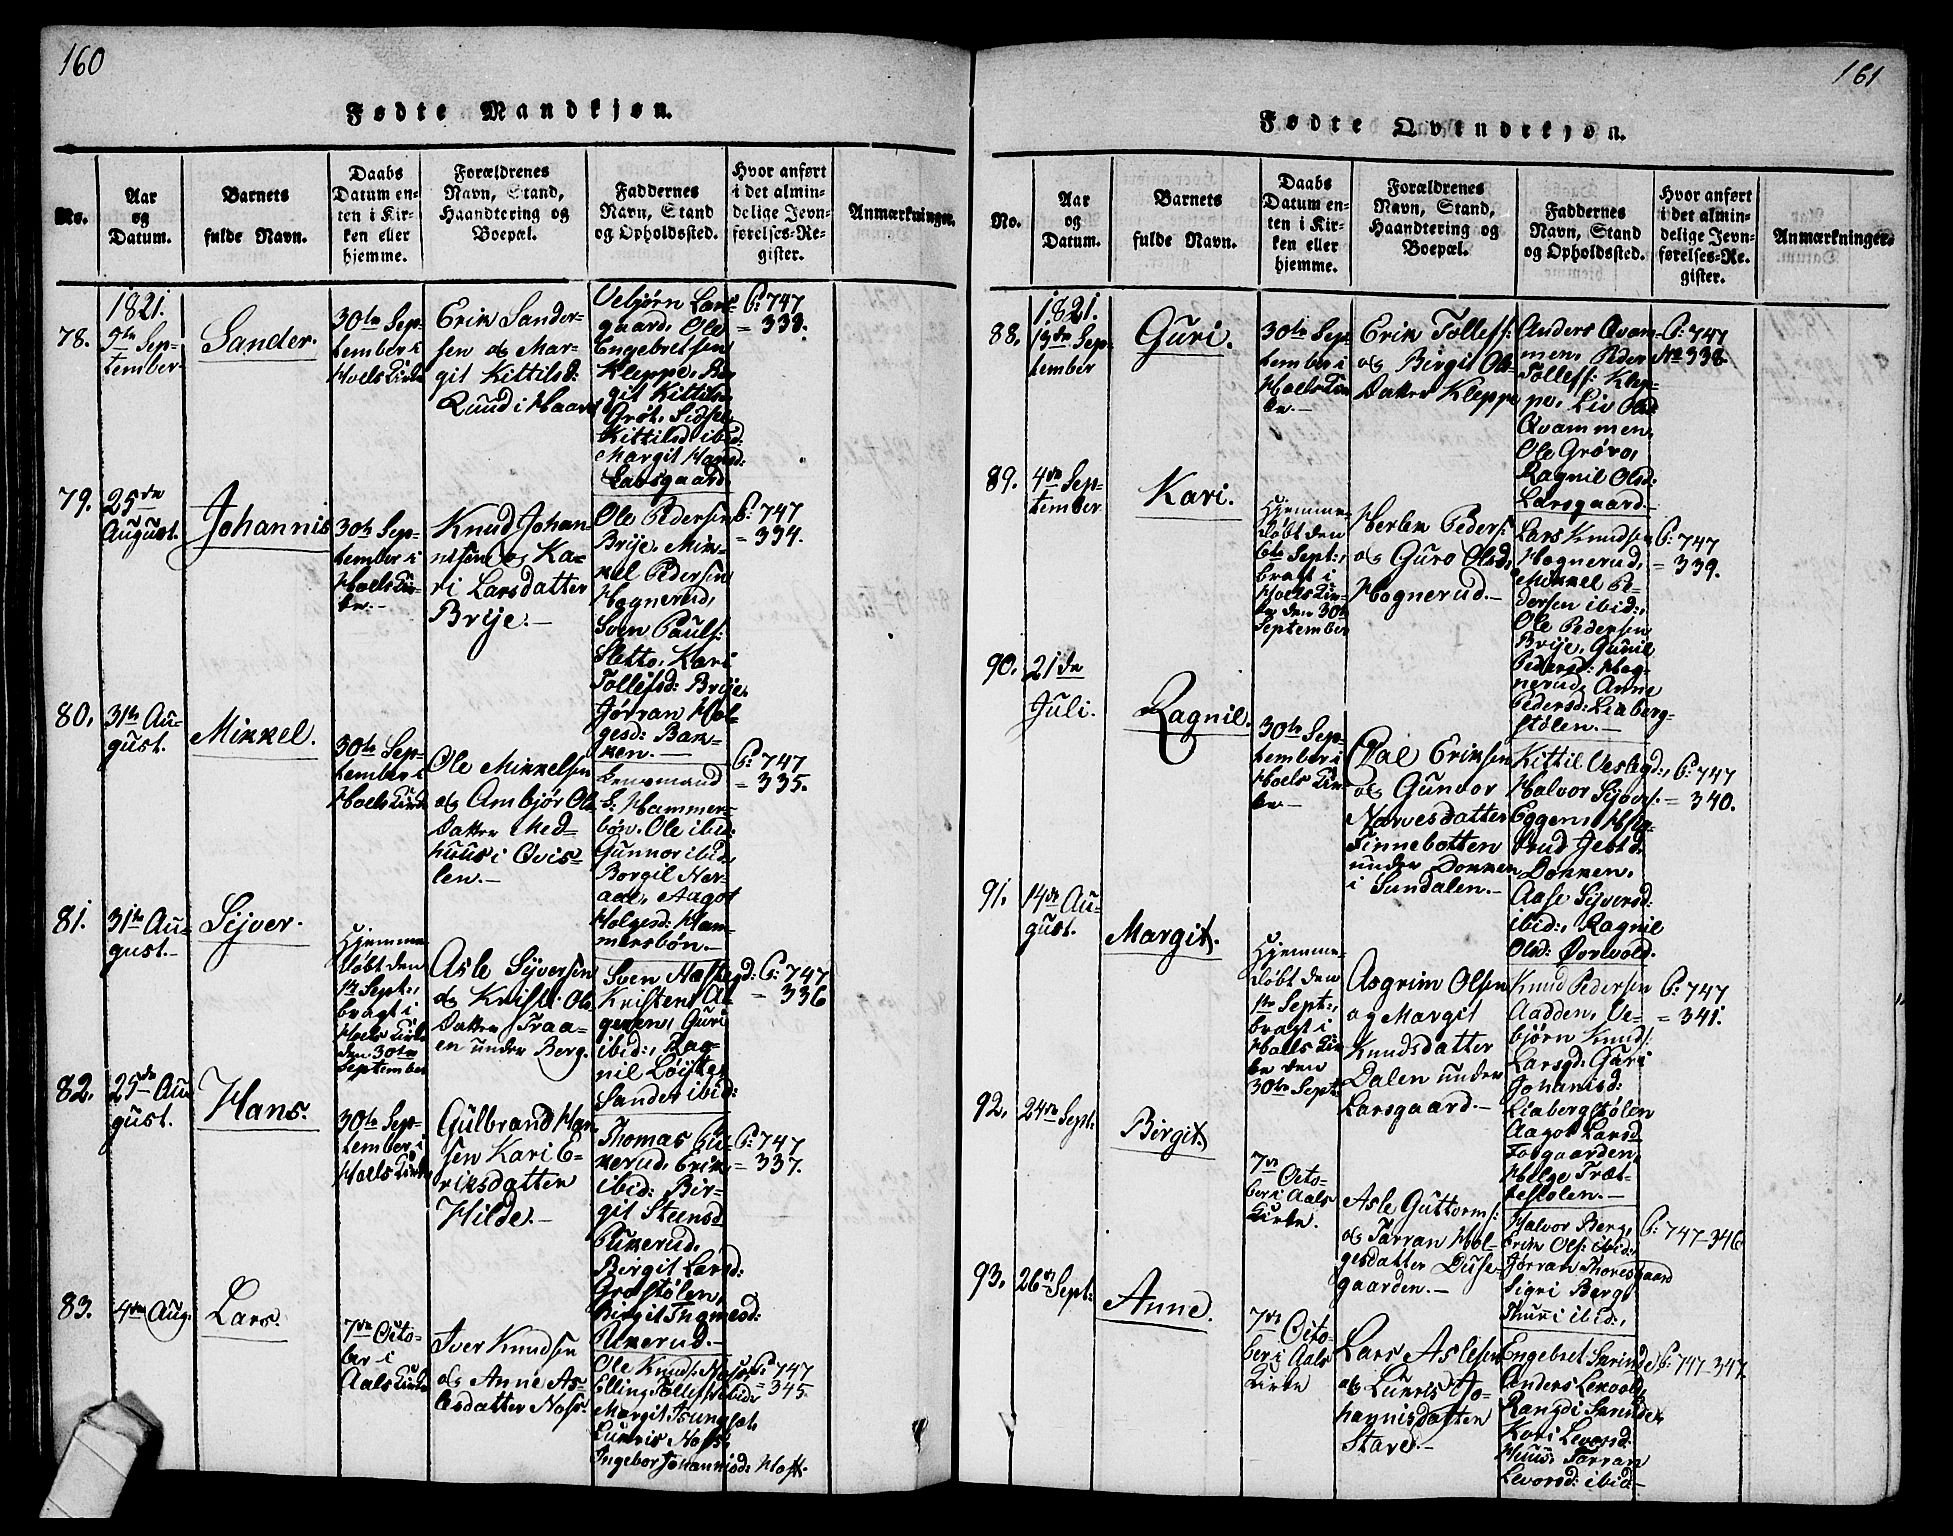 160
Fødte Mandkjøn.
No.
Aar
og
Datum.
Barnets
fulde Navn.
Daabs
Datum en-
ten i Kir-
ken eller
hjemme.
Forældrenes
Navn, Stand,
Haandtering og
Boepæl.
Faddernes
Navn, Stand
og Opholdssted.
Hvor anført
i det almin-
delige Jevn-
førelses-Re-
gister.
Anmærkninger.
1821.
78.
Sep-
tember
Sander.
30te Sep-
tember i
Hoels Kirke
Erik Sander-
sen og Mar-
git Kittilsd:
Ruud i
Vebjørn Lars-
gaard, Ole
Engebretsen
Kleppe, Bir-
git Kittilsd:
Grøt, Sidsel
Kittilsd: ibid:
Margit
Larsgaard
P: 747
= 333.
79.
25de
August.
Johannis
30te Sep-
tember i
Hoels Kir-
ke.-
Knud Johan-
nisen og Ka-
ri Larsdatter
Brije.-
Ole Pedersen
Brije, Mik-
kel Pedersen
Hognerud,
Sven Pauls:
Sletto, Kari
Tollefsd: Brije,
Jørran Hol-
gesd: Bak-
ken.-
P: 747
= 334.
80.
31te Au-
gust.
Mikkel.
30te Sep-
tember i
Hoels Kirke
Ole Mikkelsen
og Ambjør Ols
Datter Med-
huus i Qvis-
len.-
Lensmand
S: Hammer-
bøn, Ole ibid:
Gunnor ibid,
Borgil Nor-
aal, Aagot
Holgesd: Ham-
mersbøn.-
P: 747
= 335.
81.
31te Au-
gust.-
Sijver.
Hjemme
Døbt den
1te Sept:,
bragt i
Hoels Kirke
den 30te
September
Asle Sijversen
og Kristi Ols
Datter Traa-
en under Berg.
Sven
Kristen
Guri
ibid:, Rag-
nil
Sander ibid:
P: 747
= 336
82.
25de Au-
gust.
Hans.
30te Sep-
tember i
Hoels Kirke
Gulbrand Han-
sen Kari E-
riksdatter
Hilde.-
Thomas Pu-
kerud, Erik
ibid: Bir-
git Steensd
Pukerud,
Birgit Larsd:
Grøtstølen,
Birgit Ingnesd:
Pukerud.-
P: 747
= 337.
83.
4de Aug:
Lars.
7de Octo-
ber i
Aals Kirke
Iver Knudsen
og Anne As-
lesdatter Noss.
Ole Knuds: Noss
Elling Tollefs: ibid:
Margit
Noss,
Ingebor Johannisd:
P: 747
= 345.
161
Fødte Qvindekjøn.
No.
Aar
og
Datum.
Barnets
fulde Navn.
Daabs
Datum en-
ten i Kir-
ken eller
hjemme.
Forældrenes
Navn, Stand,
Haandtering og
Boepæl.
Faddernes
Navn, Stand
og Opholdssted.
Hvor anført
i det almin-
delige Jevn-
førelses-Re-
gister.
Anmærkninger.
1821.
88.
13de Sep-
tember
Guri.
30te Sep-
tember i
Hoels Kir-
ke.-
Erik Tollefs:
og Birgit Ols-
Datter Kleppe
Anders Qvam-
men, Peder
Tollefs: Klep-
pe, Liv Olsd
Qvammen,
Ole Grøva,
Ragnil Olsd:
Larsgaard.-
P: 747
No 338.
89.
4de Sep-
tember
Kari.
Hjemme-
Døbt den
6te Sept:,
bragt i
Hoels Kir-
ke den 30te
September
Herlek Peders:
og Guro Olsd,
Hognerud.-
Lars Knudsen
Hognerud,
Mikkel Pe-
dersen ibid:,
Ole Pedersen
Brije, Gunil
Pedersd: Hog-
nerud, Anne
Pedersd: Liaberg-
stølen.-
P: 747
= 339.
90.
21de
Juli.
Ragnil.
30te Sep-
tember i
Hoels Kir-
ke.-
Paal Eriksen
og Gunvor
Narvesdatter
Finnebotten
under Dokken
i Sundalen.-
Kittil Veslegd:,
Halvor Sijvers:
Eggen,
Dokken,
Aase Sijversd:
ibid:, Ragnil
Olsd:
P: 747
= 340.
91.
14de Au-
gust.
Margit.
Hjemme-
Døbt den
1te Sept:,
bragt i
Hoels Kir-
ke den
30te Sept:
Asgrim Olsen
og Margit
Knudsdatter
Dalen under
Larsgaard.-
Knud Pedersen
Aadden, Ve-
bjørn Knuds:
Larsgd: Guri
Johanisd:
Liabergstølen
Aagot Larsd
Fosgaarden,
Helge Træt-
testolen.-
P: 747
= 341.
92.
24de Sept:
Birgit.
7de Octo-
ber i Aals
Kirke.
Asle Guttorms:
og Jørran Hol-
gesdatter Duse-
gaarden.-
Halvor Berg,
Erik Ols: ibid:,
Jørran Thoresgaard
Sigri Berg,
Thuri ibid:,
P: 747-346
93.
26de Sept:
Anne.
7de Octo-
ber i Aals
Kirke
Lars Aslesen
og Jo-
hannisdatter
Stave.-
Engebret
Anders
Rangdi
Kari Levorsd:
Huus, Jørran
Levorsd: ibid-
P: 747-347.